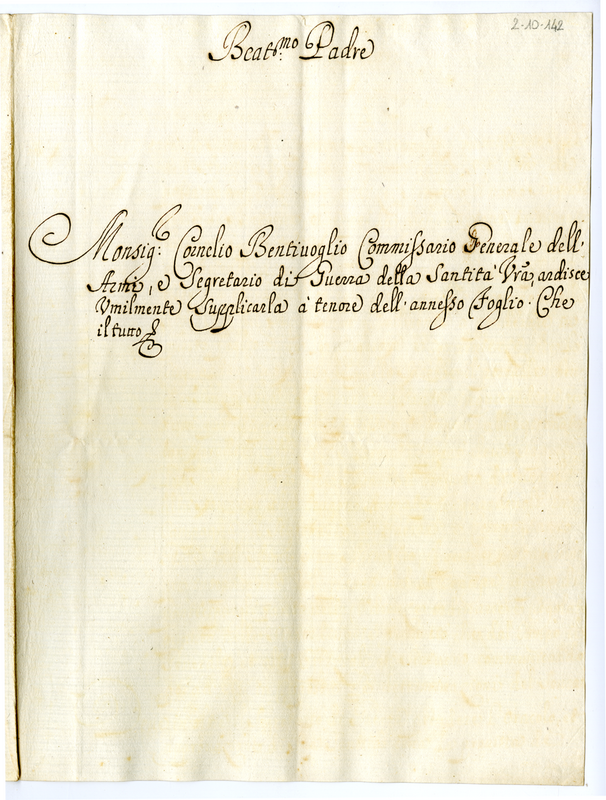 2-10-142
Beat.mo Padre
Monsig: Cornelio Bentiuoglio Commissario Generale dell'
Armi, e Segretario di Guerra della Santità Vrã, ardisce
Vmilmente supplicarla à tenore dell' annesso Foglio. Che
il tutto